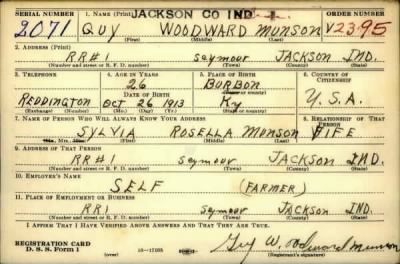 SERIAL NUMBER 1. NAME (Print) JACKSON CO IND-1 ORDER NUMBER
2071 GUY WOODWARD MUNSON V2395
(First) (Middle) (Last)
2. ADDRESS (Print)
RR#1 Seymour JACKSON IND.
(Number and street or R. F. D. number) (Town) (County) (State)
3. TELEPHONE 4. AGE IN YEARS 5. PLACE OF BIRTH 6. COUNTRY OF CITIZENSHIP
26 BURBON
DATE OF BIRTH (Town or county)
REDDINGTON Oct 26 1913 Ky U.S.A.
(Exchange) (Number) (Mo.) (Day) (Yr.) (State or country)
7. NAME OF PERSON WHO WILL ALWAYS KNOW YOUR ADDRESS 8. RELATIONSHIP OF THAT PERSON
SYLVIA ROSELLA MUNSON WIFE
(Mr., Mrs., Miss) (First) (Middle) (Last)
9. ADDRESS OF THAT PERSON
RR#1 Seymour JACKSON IND.
(Number and street or R. F. D. number) (Town) (County) (State)
10. EMPLOYER'S NAME
SELF (FARMER)
11. PLACE OF EMPLOYMENT OR BUSINESS
RR1 Seymour JACKSON IND.
(Number and street or R. F. D. number) (Town) (County) (State)
I AFFIRM THAT I HAVE VERIFIED ABOVE ANSWERS AND THAT THEY ARE TRUE.
REGISTRATION CARD
D. S. S. Form 1 (over) 16-17105 Guy Woodward Munson
(Registrant's signature)